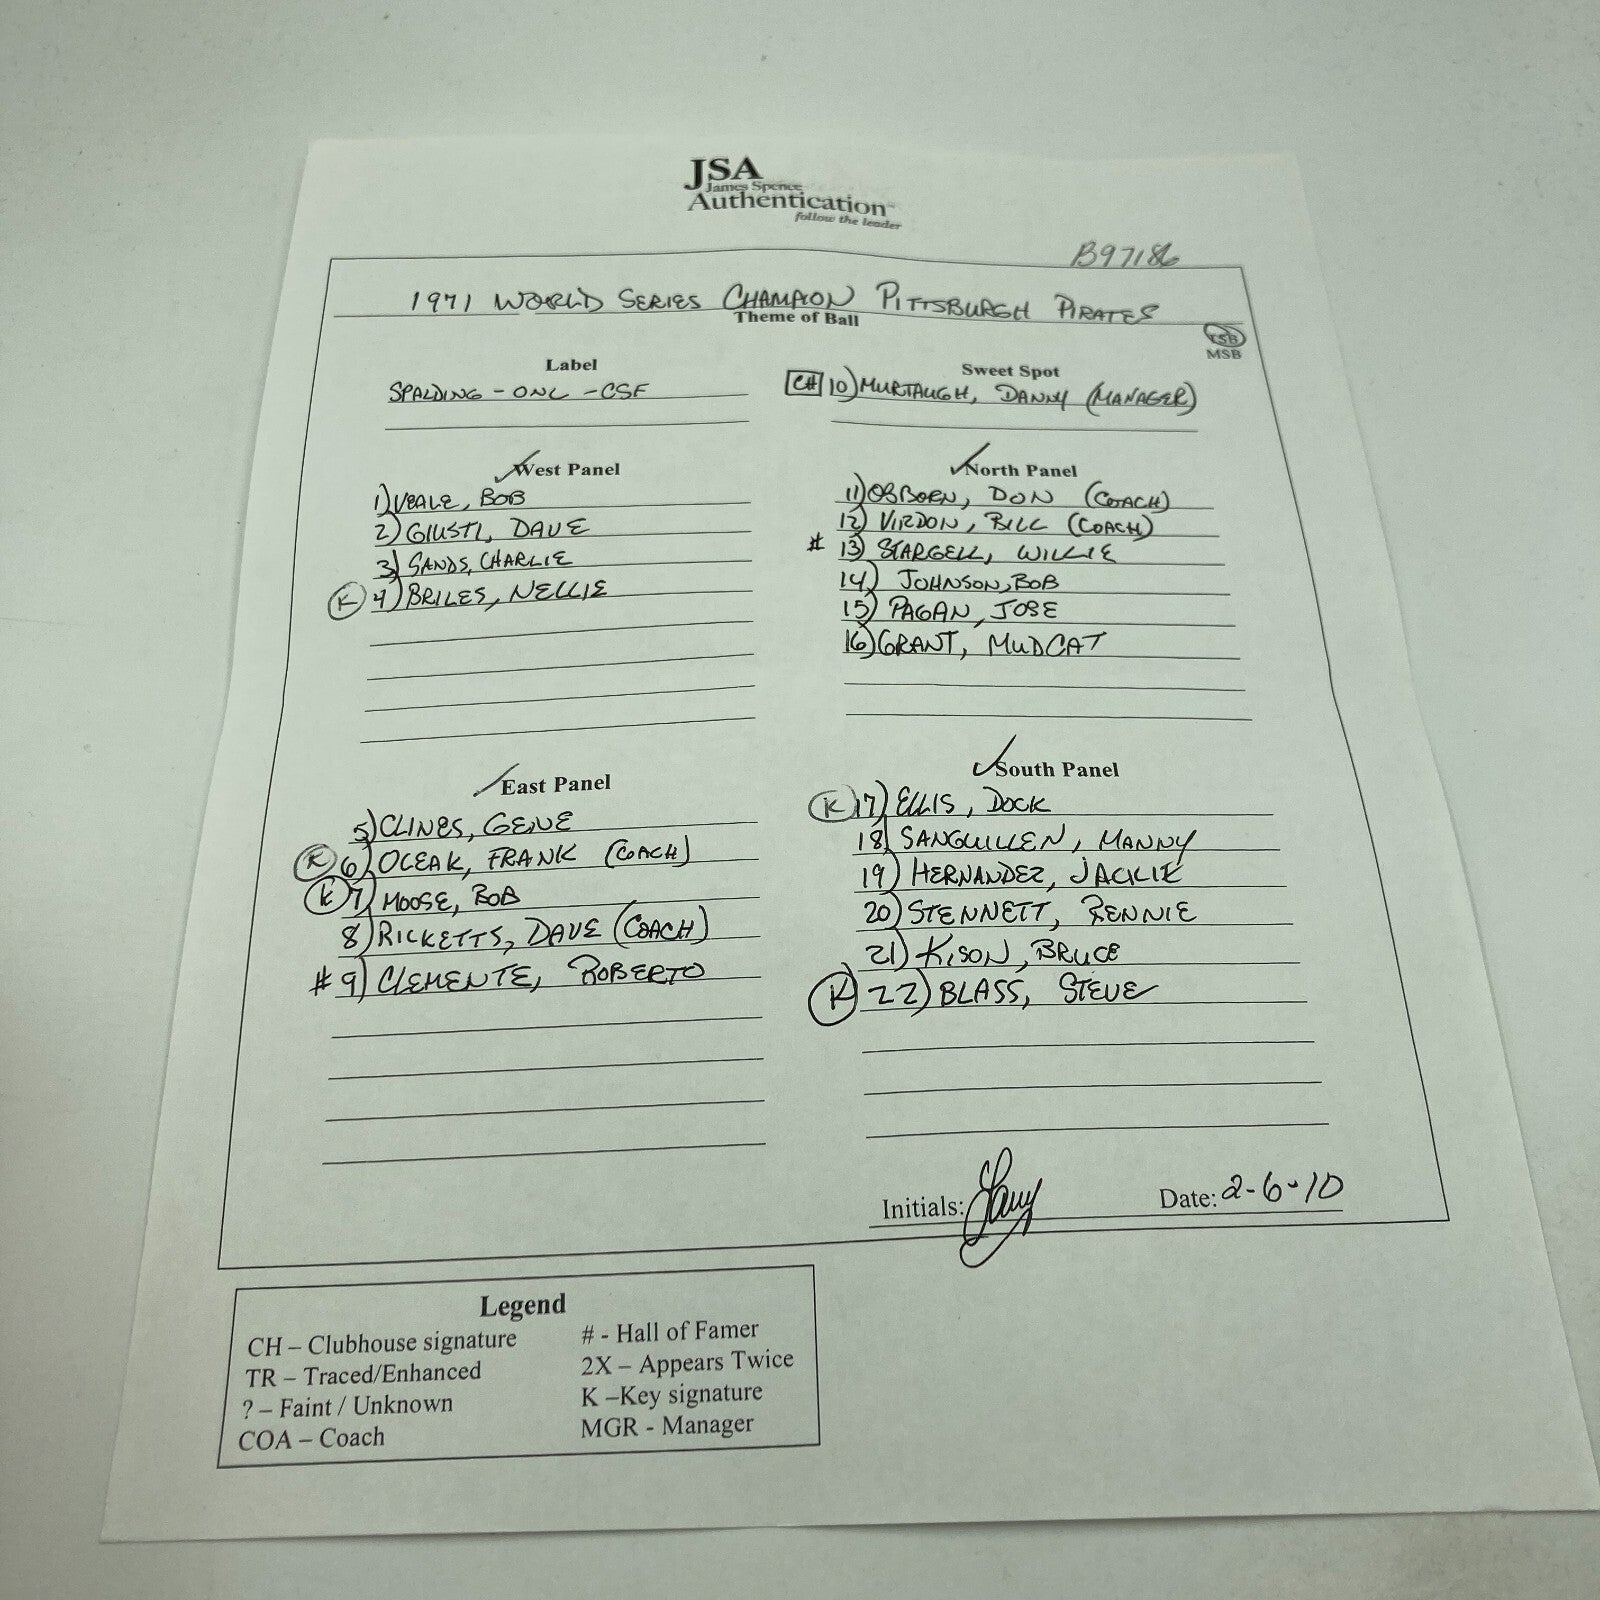 JSA
James Spence
Authentication™
follow the leader
B97186
1971 WORLD SERIES CHAMPION PITTSBURGH PIRATES
Theme of Ball
MSB
Label
SPALDING - ONL - CSF
Sweet Spot
CH 10) MURTAUGH, DANNY (MANAGER)
West Panel
1) VEALE, BOB
2) GIUSTI, DAVE
3) SANDS, CHARLIE
K 4) BRILES, NELLIE
North Panel
11) OSBORN, DON (COACH)
12) VIRDON, BILL (COACH)
# 13) STARGELL, WILLIE
14) JOHNSON, BOB
15) PAGAN, JOSE
16) GRANT, MUDCAT
East Panel
5) CLINES, GENE
K 6) OCEAK, FRANK (COACH)
K 7) MOOSE, BOB
8) RICKETTS, DAVE (COACH)
# 9) CLEMENTE, ROBERTO
South Panel
K 17) ELLIS, DOCK
18) SANGUILLEN, MANNY
19) HERNANDEZ, JACKIE
20) STENNETT, RENNIE
21) KISON, BRUCE
K 22) BLASS, STEVE
Initials:
Date: 2-6-10
Legend
CH – Clubhouse signature
TR – Traced/Enhanced
? – Faint / Unknown
COA – Coach
# - Hall of Famer
2X – Appears Twice
K –Key signature
MGR - Manager